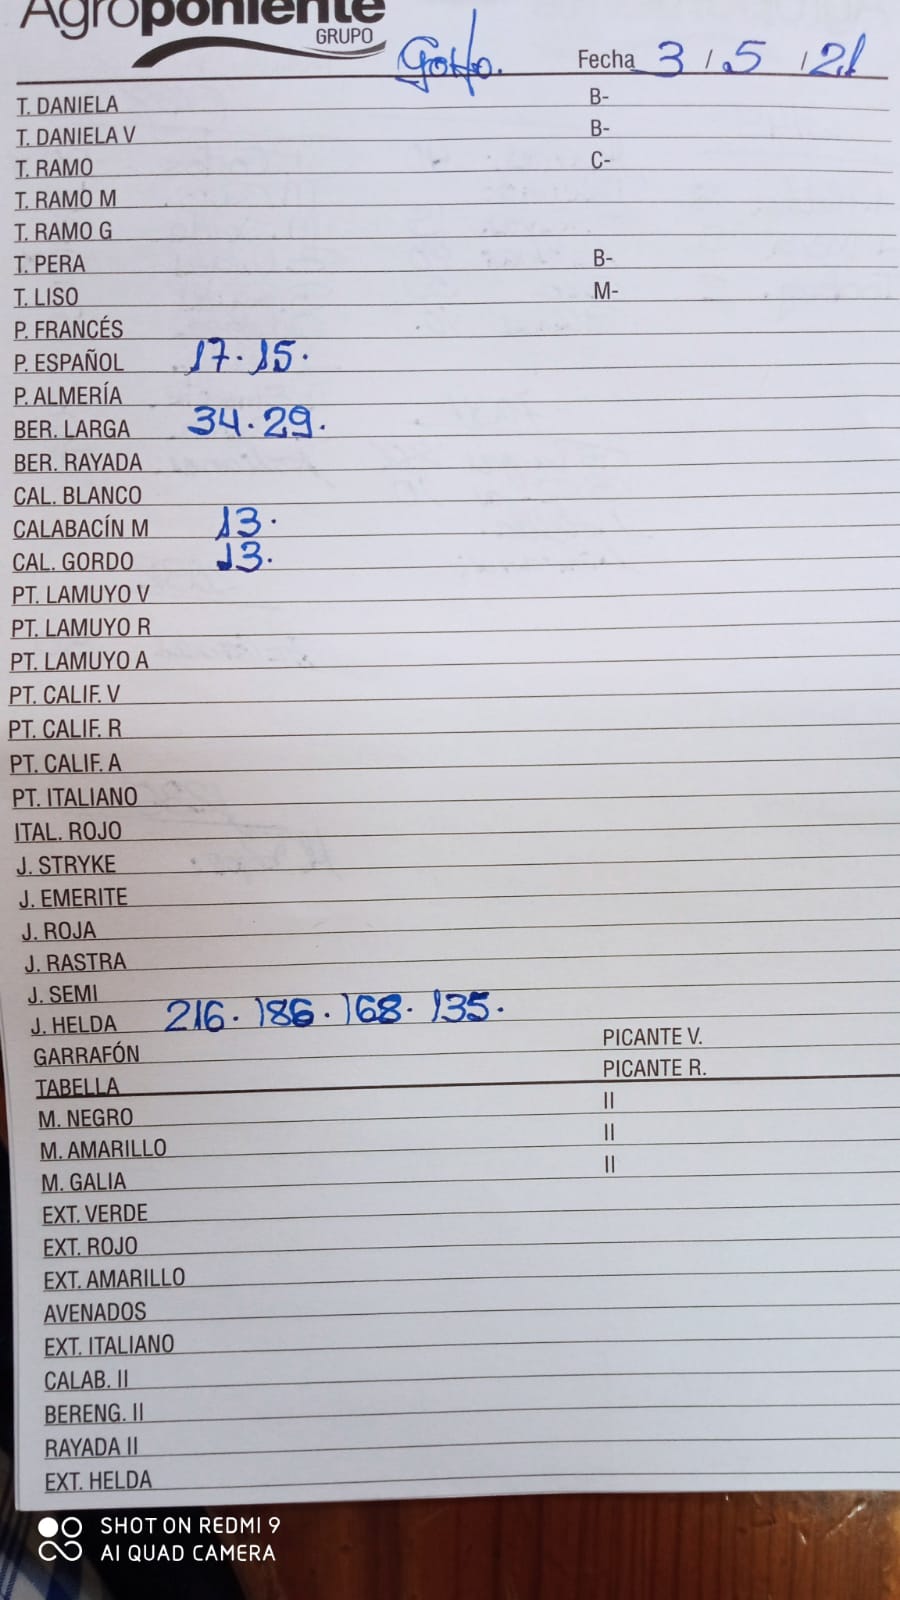 Agroponiente
GRUPO
Fecha 3 / 5 / 21
T. DANIELA B-
T. DANIELA V B-
T. RAMO C-
T. RAMO M
T. RAMO G
T. PERA B-
T. LISO M-
P. FRANCÉS
P. ESPAÑOL 17. 15.
P. ALMERÍA
BER. LARGA 34. 29.
BER. RAYADA
CAL. BLANCO
CALABACÍN M 13.
CAL. GORDO 13.
PT. LAMUYO V
PT. LAMUYO R
PT. LAMUYO A
PT. CALIF. V
PT. CALIF. R
PT. CALIF. A
PT. ITALIANO
ITAL. ROJO
J. STRYKE
J. EMERITE
J. ROJA
J. RASTRA
J. SEMI
J. HELDA 216. 186. 168. 135.
GARRAFÓN PICANTE V.
TABELLA PICANTE R.
M. NEGRO II
M. AMARILLO II
M. GALIA II
EXT. VERDE
EXT. ROJO
EXT. AMARILLO
AVENADOS
EXT. ITALIANO
CALAB. II
BERENG. II
RAYADA II
EXT. HELDA
SHOT ON REDMI 9
AI QUAD CAMERA